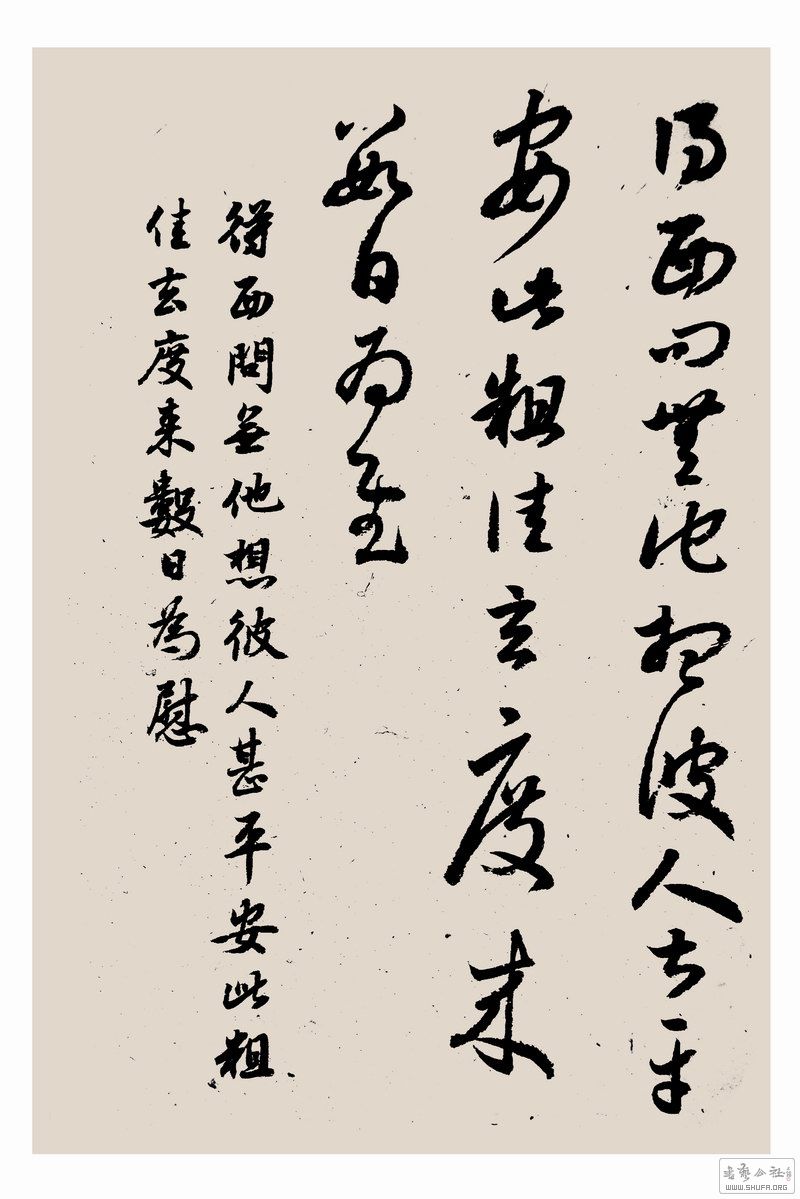 得西問無他想彼人甚平
安此粗佳玄度來
數日為慰
得西問無他想彼人甚平安此粗
佳玄度来數日為慰
書藝公社
WWW.SHUFA.ORG